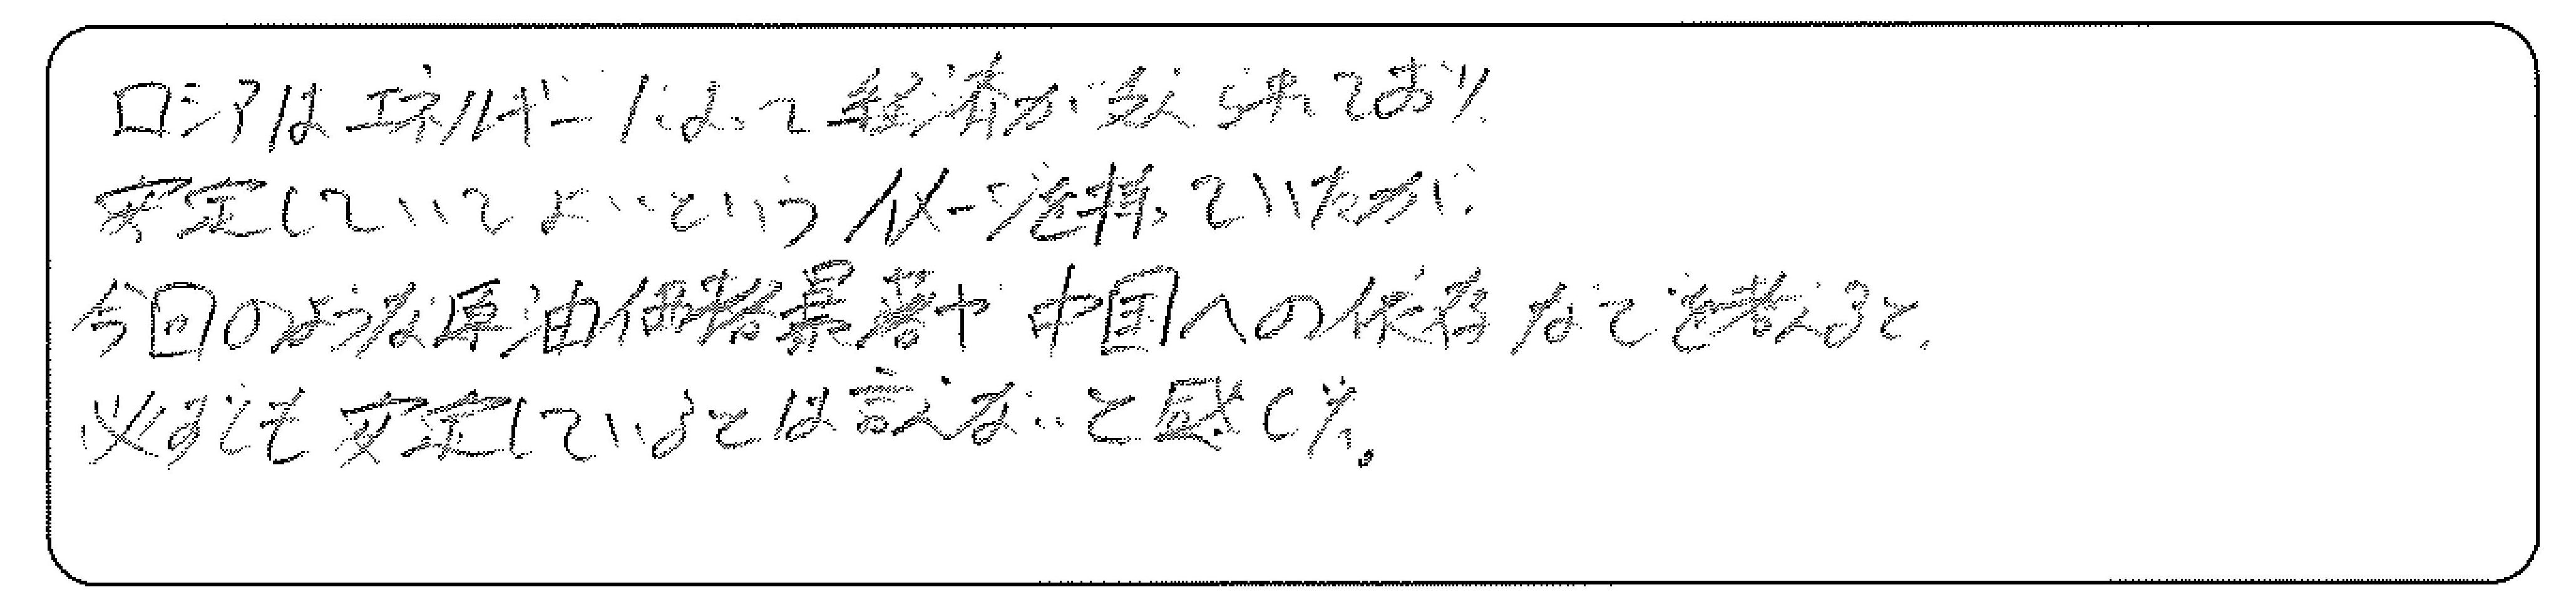 ロシアはエネルギーによって経済が支えられており、
安定していてよいというイメージを持っていたが、
今回のような原油価格暴落や中国への依存などを考えると、
必ずしも安定しているとは言えないと感じた。